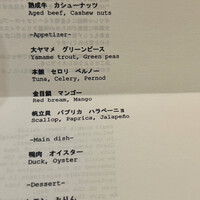 熟成牛 カシューナッツ
Aged beef, Cashew nuts
-Appetizer-
大ヤマメ グリーンピース
Yamame trout, Green peas
本鮪 セロリ ペルノー
Tuna, Celery, Pernod
金目鯛 マンゴー
Red bream, Mango
帆立貝 パプリカ ハラペーニョ
Scallop, Paprica, Jalapeño
-Main dish-
鴨肉 オイスター
Duck, Oyster
-Dessert-